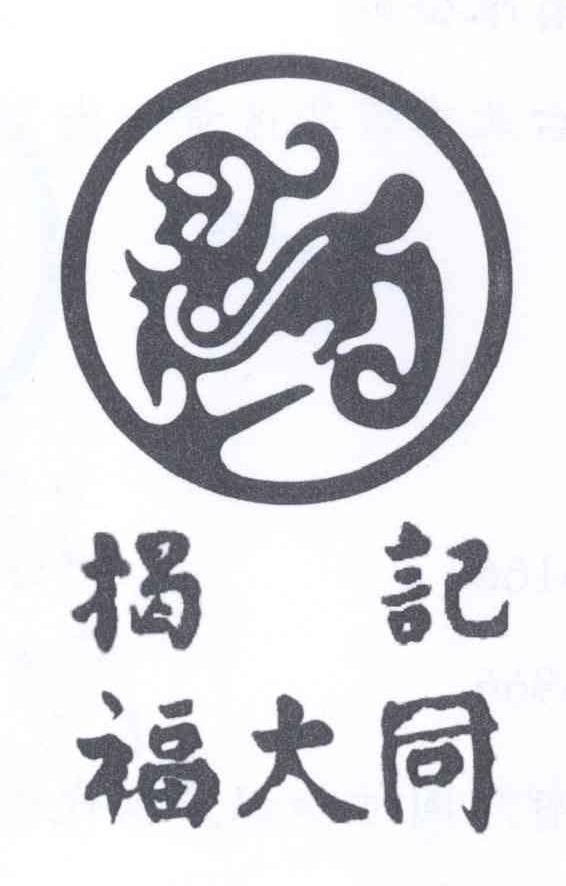 揭記
福大同